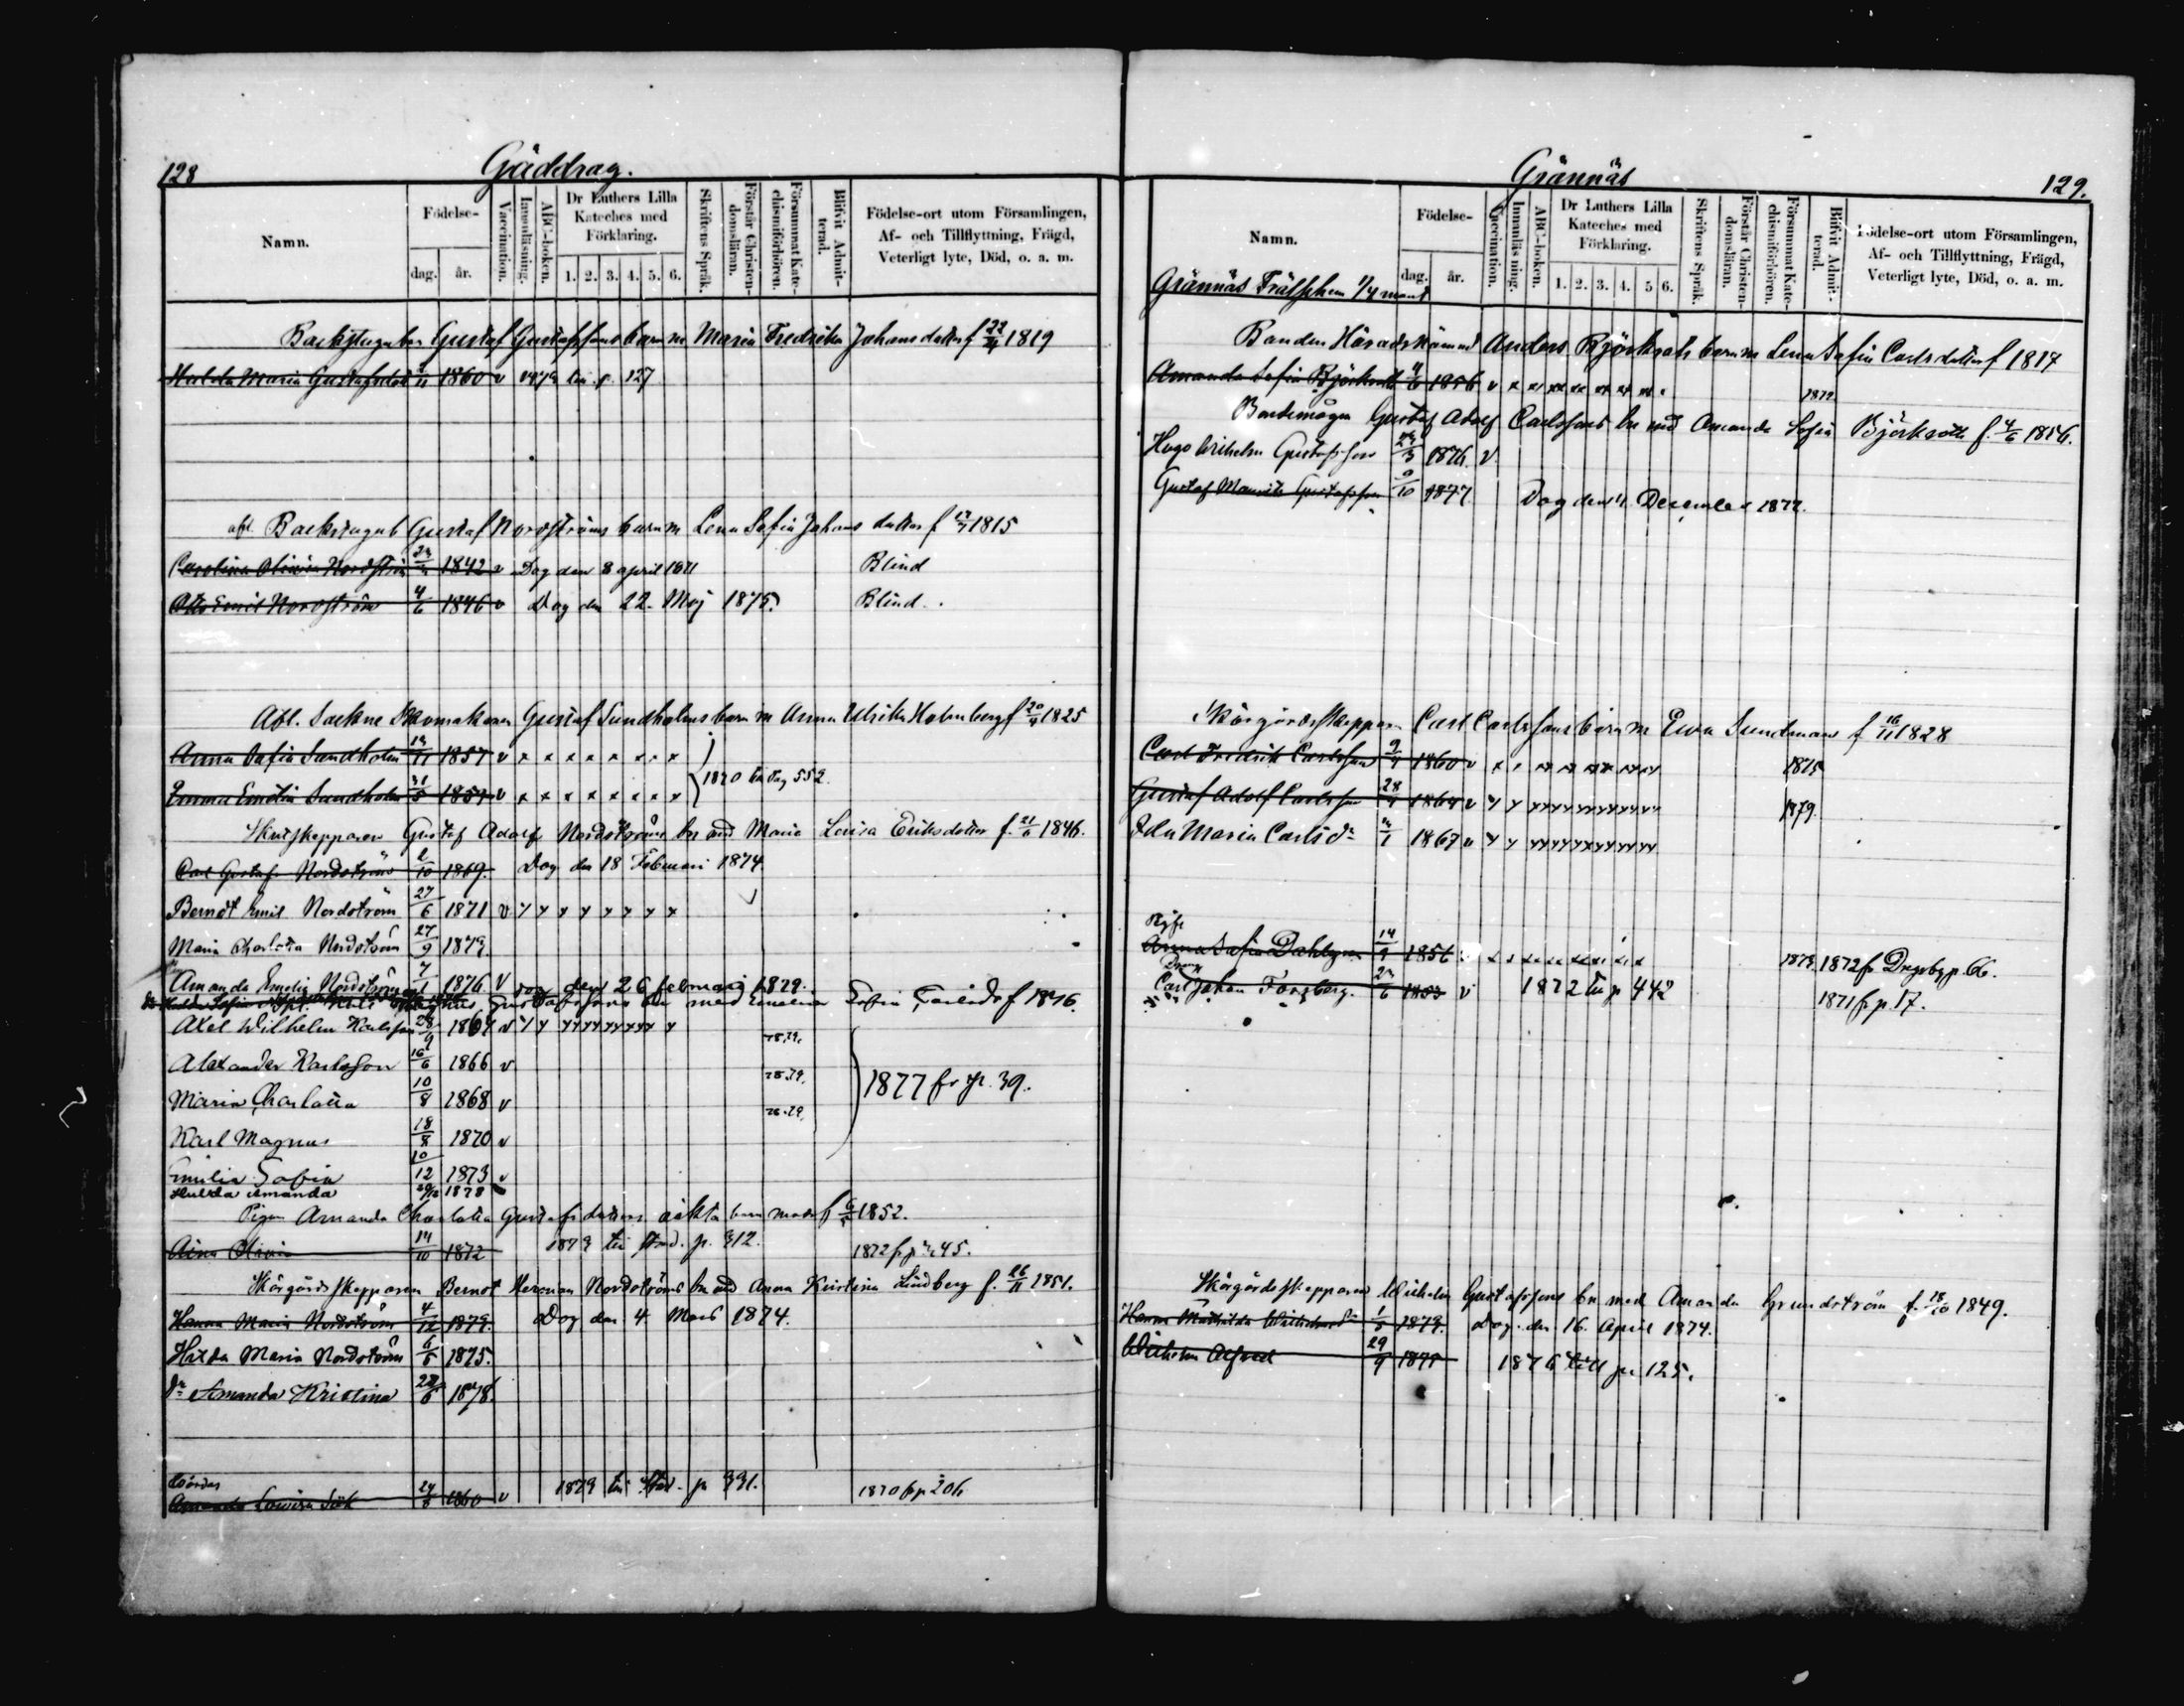 128
Gäddrag.
Namn.
Födelse-
dag. år.
Vaccination.
Innanläsning.
ABC-boken.
Dr Luthers Lilla Kateches med Förklaring.
1. 2. 3. 4. 5. 6.
Skriftens Språk.
Förstår Christendomsläran.
Försummat Katechismiförhören.
Blifvit Admitterad.
Födelse-ort utom Församlingen, Af- och Tillflyttning, Frägd, Veterligt lyte, Död, o. a. m.
Gustaf Gustafssons barn m Maria Fredrika Johansdotter f 22/4 1819
Hulda Maria Gustafsdott 1860 v 1873 till p. 127
afl. Backstugub Gustaf Nordströms barn m Lena Sofia Johansdotter f 1815
Carolina Olivia Nordström 1842 v Dog den 8 april 1871 Blind
Otto Emil Nordström 4/6 1846 v Dog den 22. Maj 1875. Blind.
Afl. Sockne Skomakaren Gustaf Sundholms barn m Anna Ulrika Holmberg f 20/9 1825
Anna Sofia Sundholm 1857 v x x x x x x x x
Emma Emilia Sundholm 31/5 1859 v x x x x x x x x 1870 till pag 552
Skutskepparen Gustaf Adolf Nordströms bn md Maria Lovisa Eriksdotter f. 21/6 1846.
Carl Gustaf Nordström 2/10 1869. Dog den 18 Februari 1874
Berndt Emil Nordström 27/6 1871 v y y y y y y y y
Maria Charlotta Nordström 27/9 1873.
Amanda Emelia Nordström 1876 v Dog den 26 februari 1879.
Gustafssons bn med Emelia Sofia f 1846.
Axel Wilhelm Karlsson 28/9 1864 v y y yyyyyyyy y 78.79.
Alexander Karlsson 16/6 1866 v 78.79.
Maria Charlotta 10/8 1868 v 78.79.
1877 fr p. 39.
Karl Magnus 18/8 1870 v
Emilia Sofia 10/12 1873 v
Hulda Amanda 1878
Pigan Amanda Charlotta Gustafsdotters oäkta barn f 1852.
Aina Olivia 14/10 1872 1873 till p. 312. 1872 fr p 45.
Skärgårdsskepparen Berndt Herman Nordströms bn md Anna Kristina Lindberg f. 26/11 1851.
Hanna Maria Nordström 4/12 1873. Dog den 4 Mars 1874.
Hilda Maria Nordström 6/5 1875.
Dr Amanda Kristina 22/6 1878.
Amanda Lovisa Sjök 24/8 1860 v 1873 till p 331. 1870 fr p 206
129.
Grännäs
Namn.
Födelse-
dag. år.
Vaccination.
Innanläsning.
ABC-boken.
Dr Luthers Lilla Kateches med Förklaring.
1. 2. 3. 4. 5 6.
Skriftens Språk.
Förstår Christendomsläran.
Försummat Katechismiförhören.
Blifvit Admitterad.
Födelse-ort utom Församlingen, Af- och Tillflyttning, Frägd, Veterligt lyte, Död, o. a. m.
Grännäs 1/4 mant
Bonden Häradsnämnd Anders Björkroths barn m Lena Sofia Carlsdotter f 1817
Amanda Sofia Björkroth 4/6 1856 v
Bondemågen Gustaf Adolf Carlssons bn md Amanda Sofia Björkroth f. 4/6 1856.
Hugo Wilhelm Gustafsson 1876. v.
Gustaf Mauritz Gustafsson 1877 Dog den 4. December 1877.
Skärgårdsskepparen Carl Carlssons barn m Ewa Sundman f 16/11 1828
Carl Fredrik Carlsson 1860 v 1875
Gustaf Adolf Carlsson 28/4 1864 v y y yyyyyyyyyyyy 1879.
Maria Carlsdr 1867 v y y yyyyyyyyyyyy
Anna Sofia Dahlgren 14/9 1856 1873. 1872 fr Dragsby p. 66.
Dreng
Carl Johan Forsberg. 1853 v 1872 till p 442 1871 fr p. 17.
Skärgårdsskepparen Wilhelm Gustafssons bn med Amanda Grundström f. 18/10 1849.
Hanna Mathilda Wilhelmsdr 1/5 1873. Dog den 16. April 1874.
Wilhelm Alfred 29/9 1876 till p. 125.